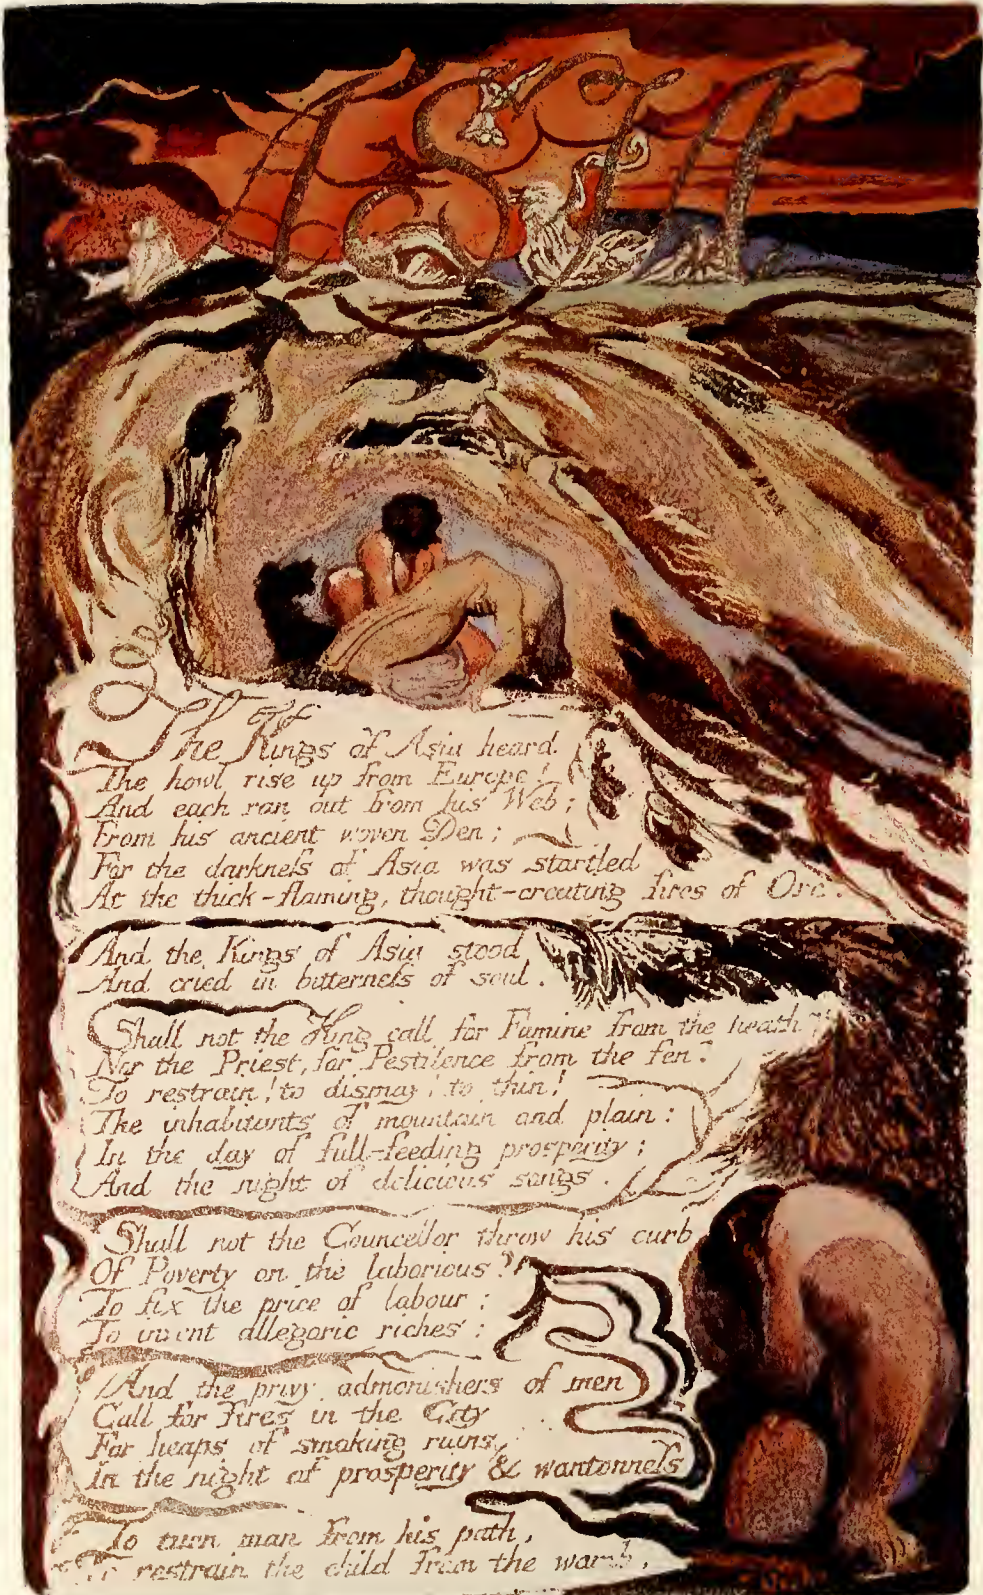 ASIA
The Kings of Asia heard
The howl rise up from Europe!
And each ran out from his Web;
From his ancient woven Den;
For the darkneſs of Asia was startled
At the thick-flaming, thought-creating fires of Orc.
And the Kings of Asia stood
And cried in bitterneſs of soul.
Shall not the King call for Famine from the heath?
Nor the Priest, for Pestilence from the fen?
To restrain! to dismay! to thin!
The inhabitants of mountain and plain:
In the day of full-feeding prosperity;
And the night of delicious songs.
Shall not the Councellor throw his curb
Of Poverty on the laborious?
To fix the price of labour:
To invent allegoric riches:
And the privy admonishers of men
Call for Fires in the City
For heaps of smoking ruins,
In the night of prosperity & wantonneſs
To turn man from his path,
To restrain the child from the womb,